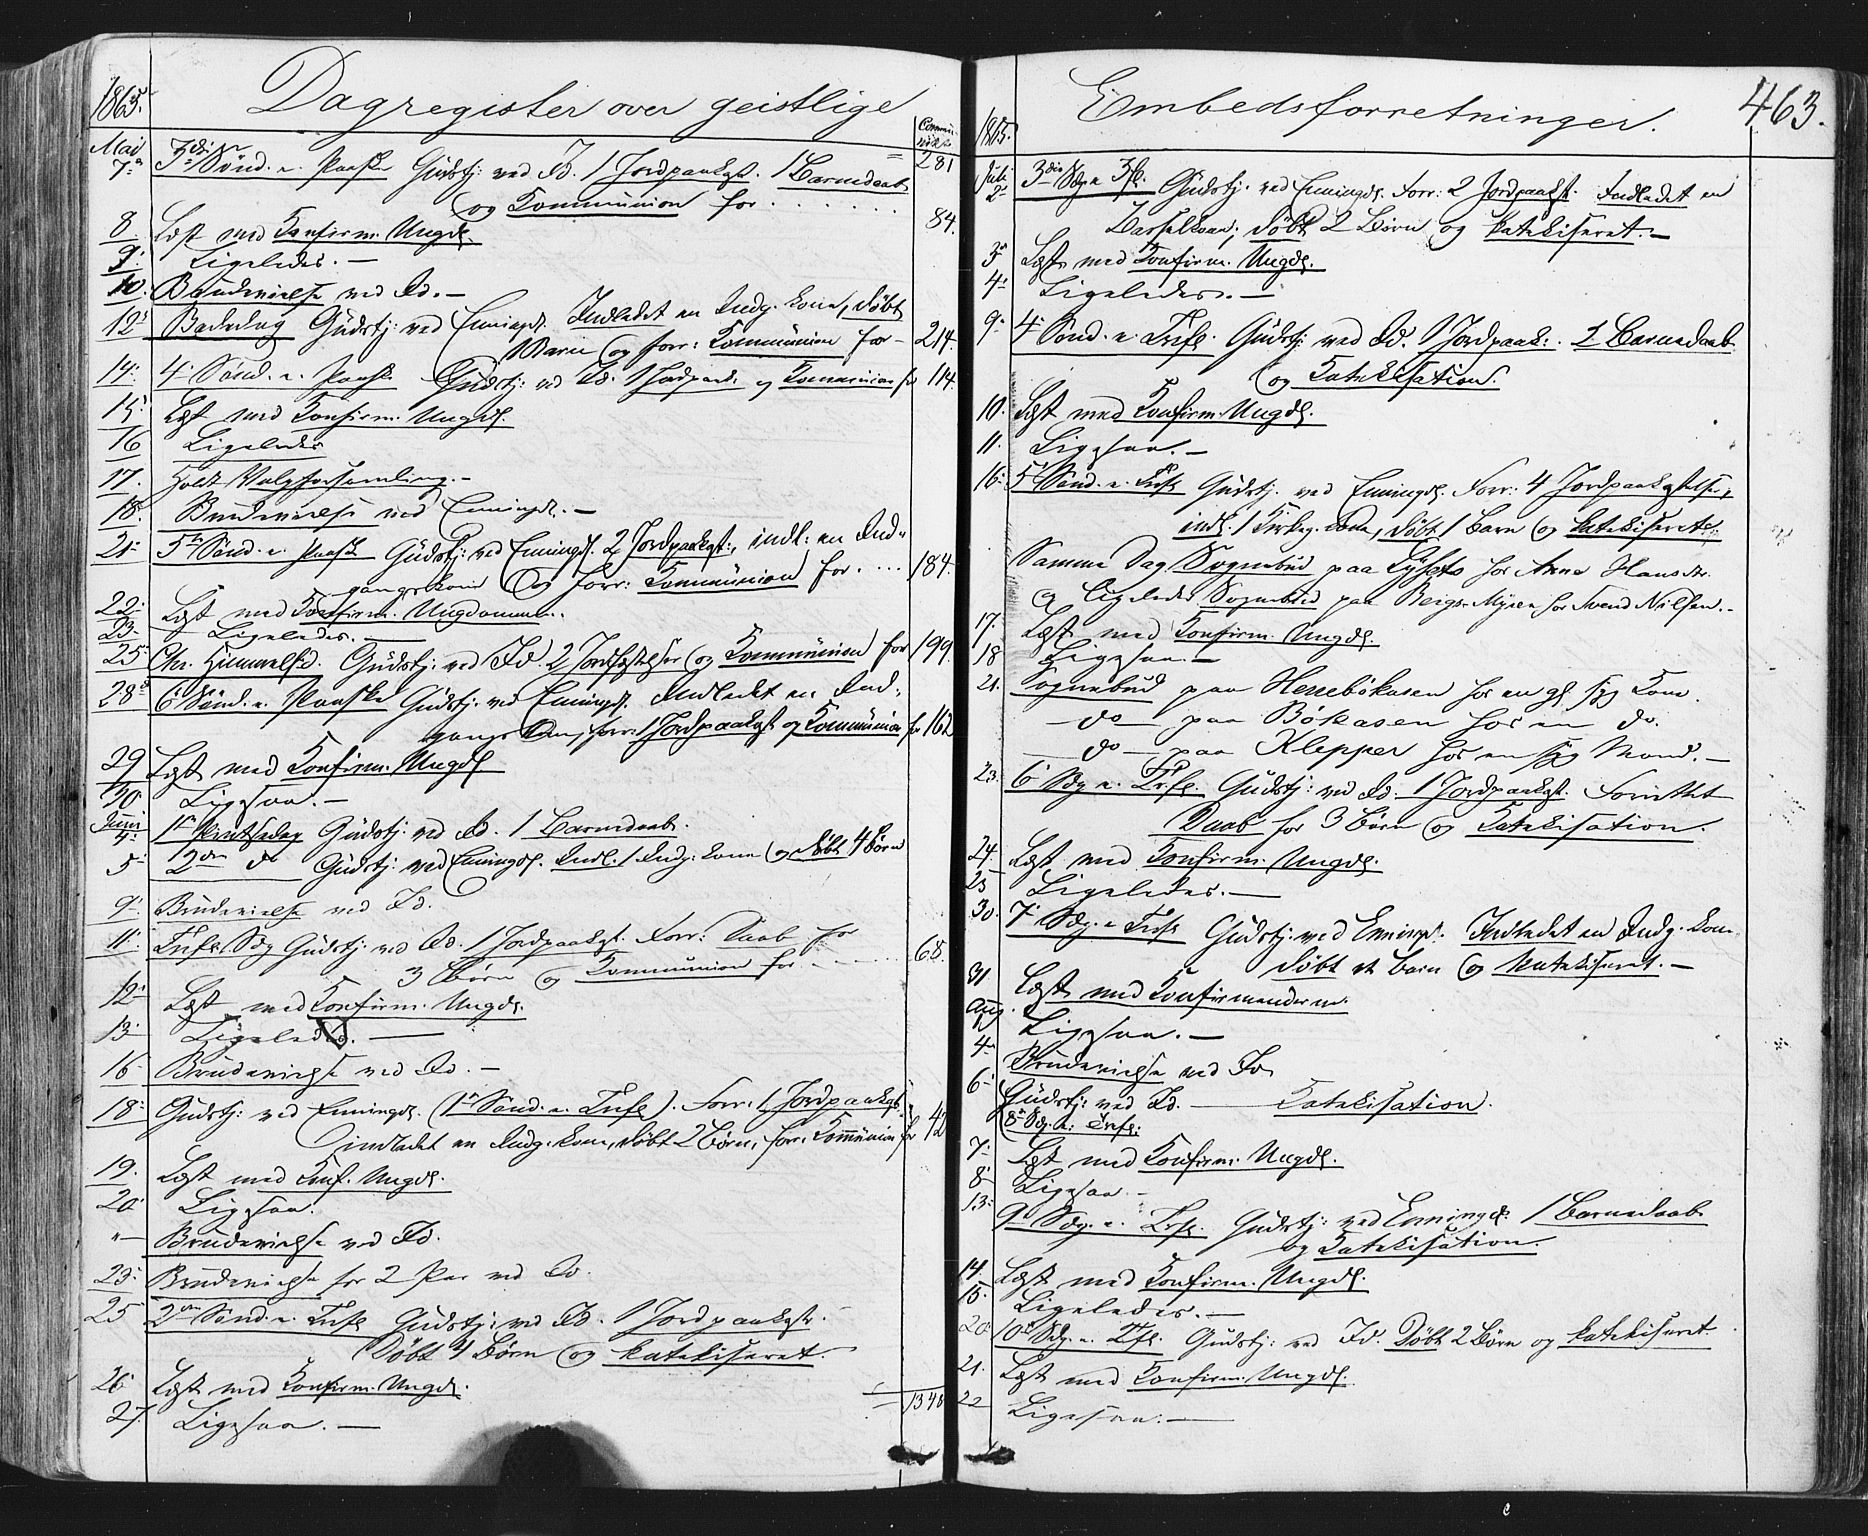 1865.
Dagregister over geistlige
Communik.
Mai
7de 3die Sønd. e. Paaske Gudstj: ved Id. 1 Jordpaakgst. 1 Barnedaab = 281
og Kommunion for . . . . . . 84.
8. Læst med Konfirm. Ungd.
9. Ligeledes. —
10. Brudevielse ved Id. —
12. Bededag Gudstj: ved Enningd. Indledet en Indg. kone, døbt
1 Barn og forr: Kommunion for — 214.
14. 4. Sønd. e. Paaske Gudstj: ved Id. 1 Jordpaak. og Kommunion for 114.
15. Læst med Konfirm. Ungd.
16 Ligeledes
17. Holdt Valgforsamling. —
18. Brudevielse ved Enningd. —
21. 5te Sønd. e. Paaske Gudstj: ved Enningd. 2 Jordpaakgst:, indl: en Ind-
gangskone og forr: Kommunion for . . . 184.
22. Læst med Konfirm. Ungdommen.
23. Ligeledes. —
25. Chr. Himmelsfd. Gudstj: ved Id. 2 Jordfæstelser og Kommunion for 199.
28. 6 Sønd. e. Paaske Gudstj. ved Enningd. Indledet en Ind-
gangskone, forr: 1 Jordpaakgst og Kommunion for 162
29 Læst med Konfirm. Ungd.
30. Ligesaa. —
Juni
4. 1ste Pintsedag Gudstj: ved Id. 1 Barnedaab.
5 2den do Gudstj: ved Enningd. Indl. 1 Indg. kone og døbt 4 Børn
9. Brudevielse ved Id.
11. Trefs. Sdg Gudstj: ved Id. 1 Jordpaakgst. Forr: Daab for
3 Børn og Kommunion for . . . . 68.
12. Læst med Konfirm. Ungd.
13. Ligeledes. —
16 Brudevielse ved Id. —
18. Gudstj: ved Enningd. (1ste Sønd. e. Trefs.). Forr: 1 Jordpaakgst.
indledet en Indg. kone, døbt 2 Børn, forr: Kommunion for 42
19. Læst med Konf. Ungd.
20 Ligesaa.
" — Brudevielse ved Id.
23. Brudevielse for 2 Par ved Id.
25 2den Sønd. e. Trefs Gudstj: ved Id. 1 Jordpaakgst.
Døbt 4 Børn og katekiseret.
26 Læst med Konfirm. Ungd.
27. Ligesaa. —
1348
Embedsforretninger.
463.
1865.
Juli
2 3die Sdg e. Trefs. Gudstj. ved Enningd. Forr: 2 Jordpaakgst. Indledet en
Barselkone; døbt 2 Børn og katekiseret. —
3 Læst med Konfirm. Ungd.
4. Ligeledes. —
9. 4. Sønd. e. Trefs. Gudstj: ved Id. 1 Jordpaak:. 2 Barnedaab
og Katekisation.
10. Læst med Konfirm. Ungd.
11. Ligesaa. —
16. 5 Sønd. e. Trefs Gudstj. ved Enningd. Forr: 4 Jordpaakastelser,
indl. 1 Kirkeg. Kone, døbt 1 Barn og katekiserete
Samme Dag Sognebud paa for Anne Hansdtr.
og ligeledes Sognebud paa Bergs-Myren for Svend Nilsen. —
17. Læst med Konfirm. Ungd.
18 Ligesaa. —
21. Sognebud paa Herrebøkasen for en gl. syg Kone.
— do — paa Bøkasen for en do.
— do — paa Klepper for en syg Mand. —
23. 6 Sdg e. Trefs. Gudstj: ved Id. 1 Jordpaakgst. Forrettet
Daab for 3 Børn og Katekisation.
24. Læst med Konfirm. Ungd.
25 Ligeledes. —
30. 7. Sdg. e Trefs Gudstj. ved Enningd. Indledet en Indg. kone
døbt et Barn og katekiseret. —
31 Læst med Konfirmanderne.
Aug.
1 Ligesaa. —
4. Brudevielse ved Id
6 Gudstj: ved Id. — Katekisation.
(8de Sdg. e: Trefs:
7. Læst med Konfirm. Ungd.
8 Ligesaa. —
13. 9. Sdg. e. Trefs. Gudstj: ved Enningd. 1 Barnedaab
og Katekisation.
14. Læst med Konfirm. Ungd.
15. Ligeledes. —
20. 10de Sdg. e. Trfs. Gudstj: ved Id. Døbt 2 Børn og katekiseret
21. Læst med Konfirm. Ungd.
22 Ligesaa. —